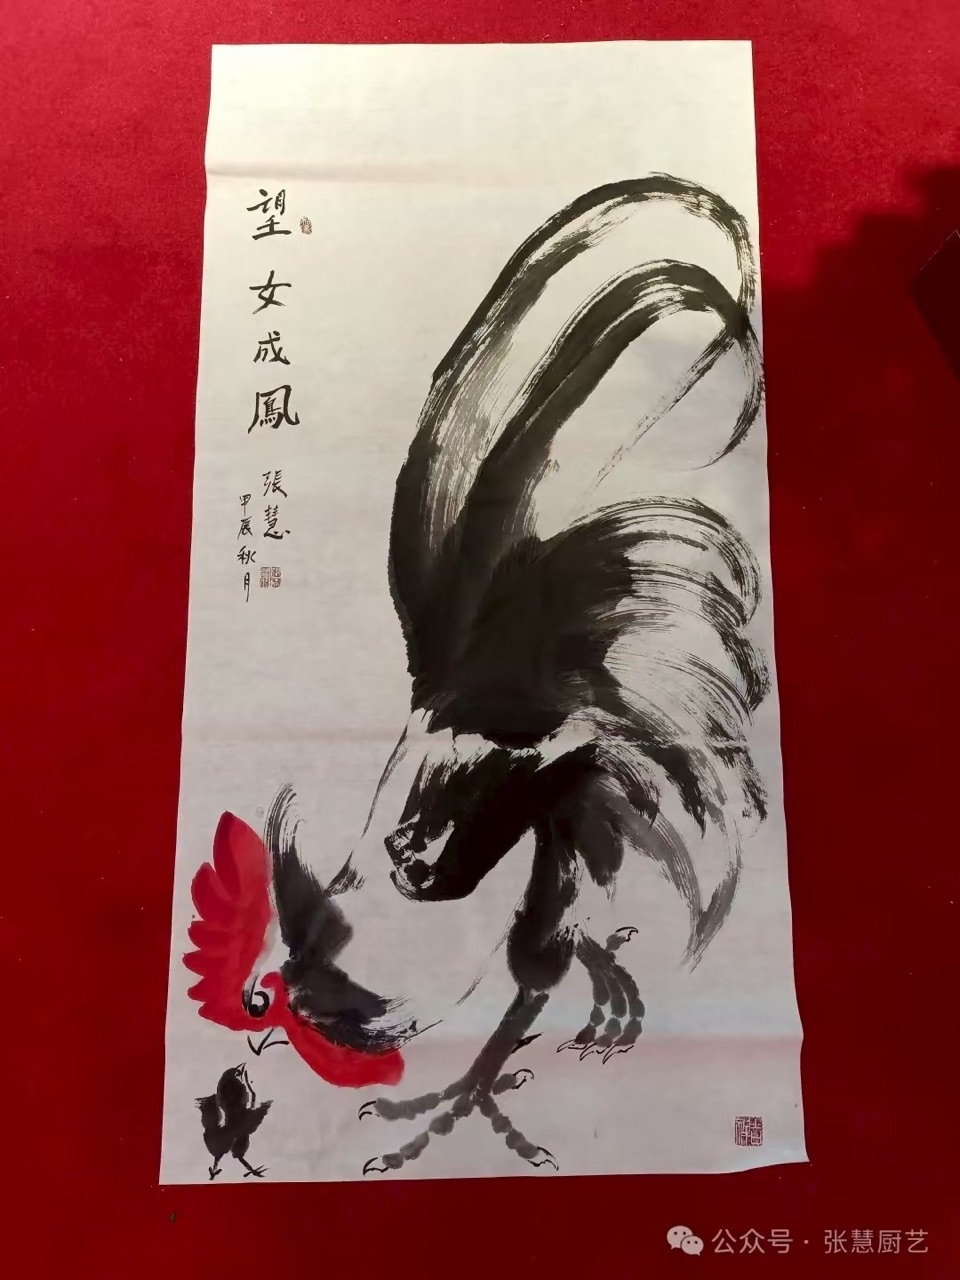 望女成鳳
張慧
甲辰秋月
公众号·张慧厨艺